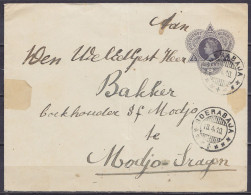 Aan
Den WelEdelGest Heer
Bakker
boekhouder Sf Modjo
te
Modjo-Sragen
SOERABAJA